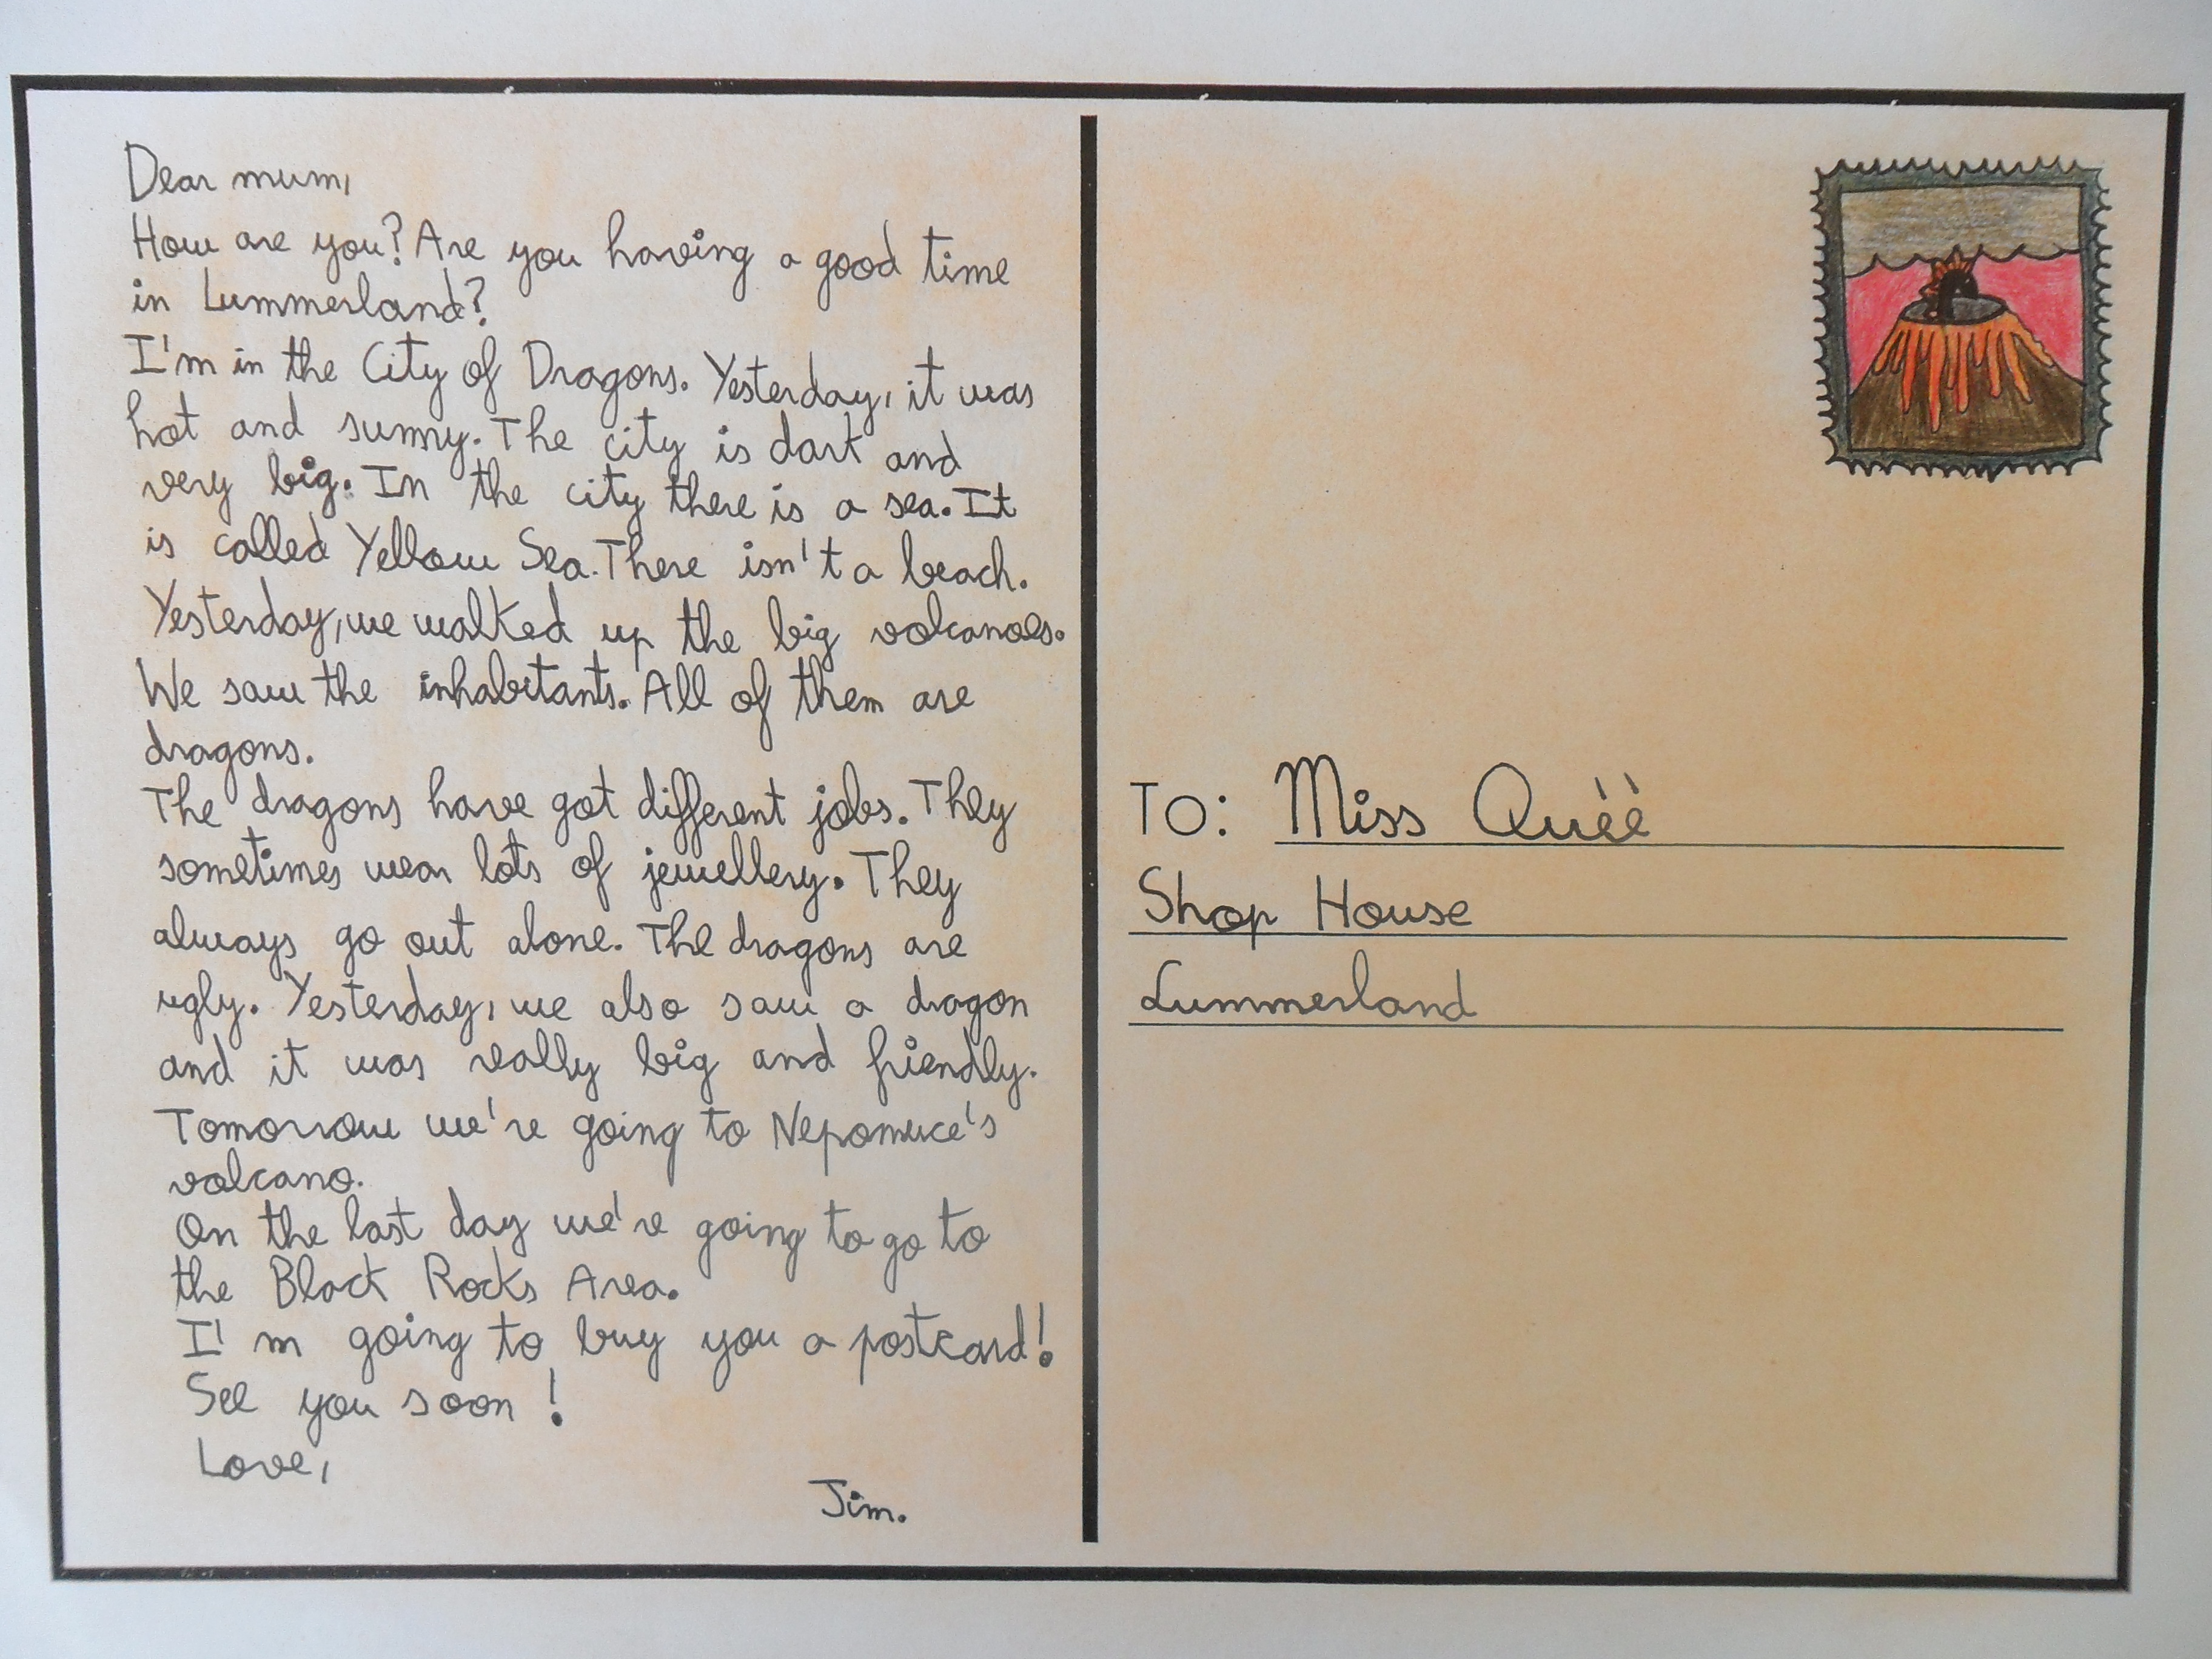 Dear mum,
How are you? Are you having a good time
in Lummerland?
I'm in the City of Dragons. Yesterday, it was
hot and sunny. The city is dark and
very big. In the city there is a sea. It
is called Yellow Sea. There isn't a beach.
Yesterday, we walked up the big volcanoes.
We saw the inhabitants. All of them are
dragons.
The dragons have got different jobs. They
sometimes wear lots of jewellery. They
always go out alone. The dragons are
ugly. Yesterday, we also saw a dragon
and it was really big and friendly.
Tomorrow we're going to Nepomuce's
volcano.
On the last day we're going to go to
the Black Rocks Area.
I'm going to buy you a postcard!
See you soon!
Love,
Jim.
TO: Miss Quèè
Shop House
Lummerland